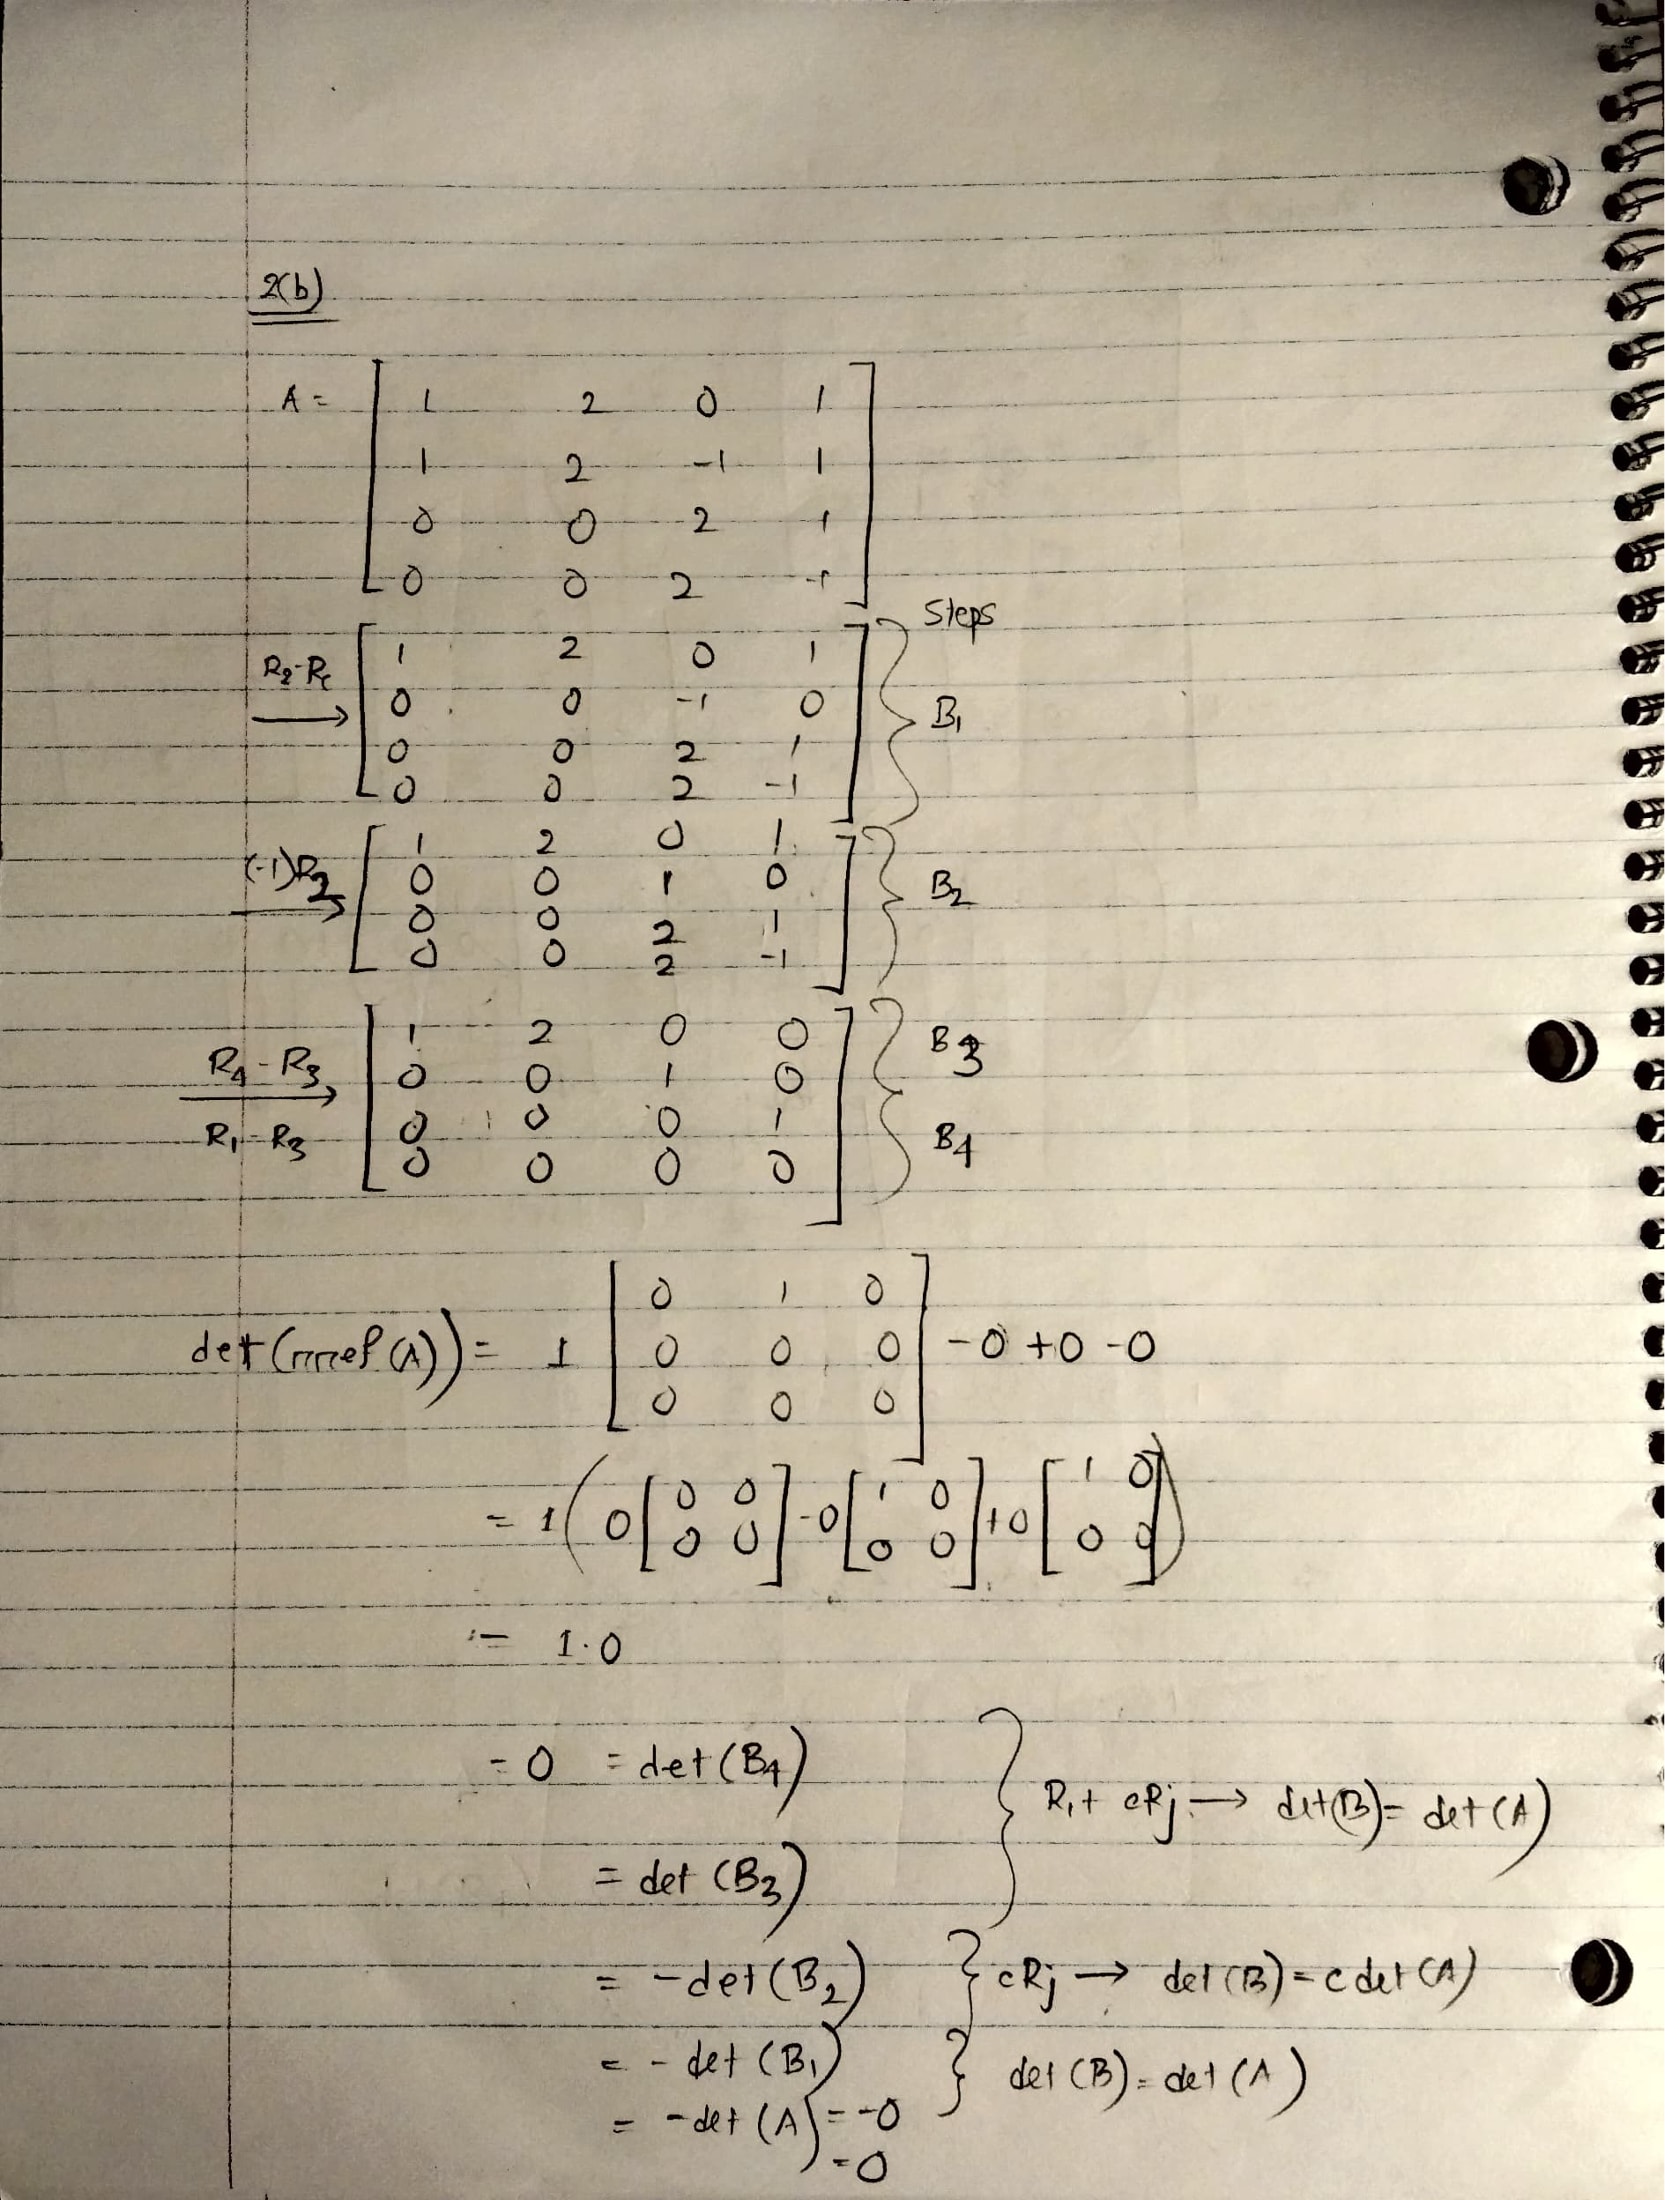 2(b)
A = [ 1 2 0 1
1 2 -1 1
0 0 2 1
0 0 2 -1 ]
Steps
R2-R1 → [ 1 2 0 1
0 0 -1 0
0 0 2 1
0 0 2 -1 ] } B1
(-1)R2 → [ 1 2 0 1
0 0 1 0
0 0 2 1
0 0 2 -1 ] } B2
R4-R3 → R1-R3 [ 1 2 0 0
0 0 1 0
0 0 0 1
0 0 0 0 ] } B3 B4
det(rref(A)) = 1 [ 0 1 0
0 0 0
0 0 0 ] -0 +0 -0
= 1( 0[ 0 0
0 0 ] -0[ 1 0
0 0 ] +0[ 1 0
0 0 ] )
= 1.0
= 0 = det(B4)
= det(B3) } Ri + cRj → det(B) = det(A)
= -det(B2) } cRj → det(B) = c det(A)
= -det(B1) } det(B) = det(A)
= -det(A) = -0
= 0